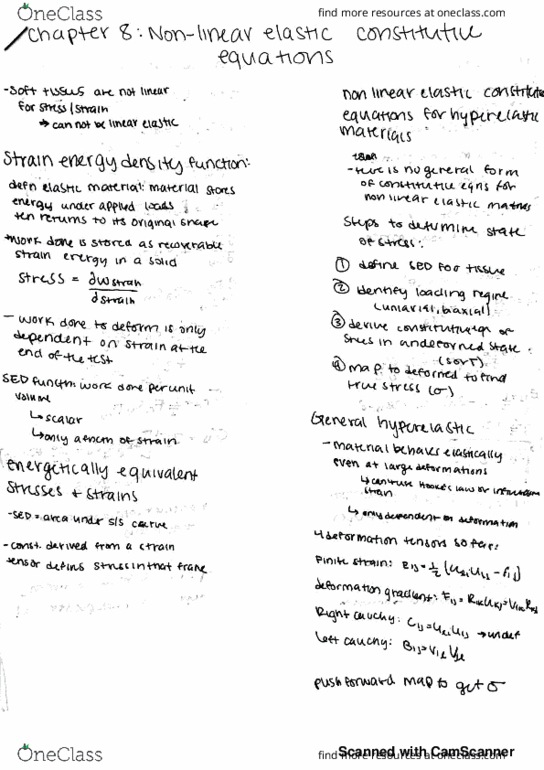 OneClass
find more resources at oneclass.com
Chapter 8: Non-linear elastic constitutive
equations
-soft tissues are not linear
for stress/strain
→ can not be linear elastic
Strain energy density function:
defn elastic material: material stores
energy under applied loads
ten returns to its original shape
*work done is stored as recoverable
strain energy in a solid
stress = ∂W strain
∂ strain
- work done to deform is only
dependent on strain at the
end of the test
SED function: work done per unit
volume
↳ scalar
↳ only a fncn of strain
energetically equivalent
stresses + strains
-SED = area under s/s curve
-const. derived from a strain
tensor defins stress in that frame
non linear elastic constitutive
equations for hyperelastic
materials
-there is no general form
of constitutive eqns for
non linear elastic
Steps to determine state
of stress:
① define SED for tissue
② identify loading regime
(uniaxial, biaxial)
③ derive of
stress in undeformed state
④ map to deformed to find
true stress (σ)
General hyperelastic
- material behaves elastically
even at large deformations
↳ Hooke's law or
strain
↳ only dependent on deformation
4 deformation tensors so far:
Finite strain:
deformation gradient:
Right cauchy: → undef
left cauchy:
push forward map to get σ
OneClass
find more resources at oneclass.com
Scanned with CamScanner